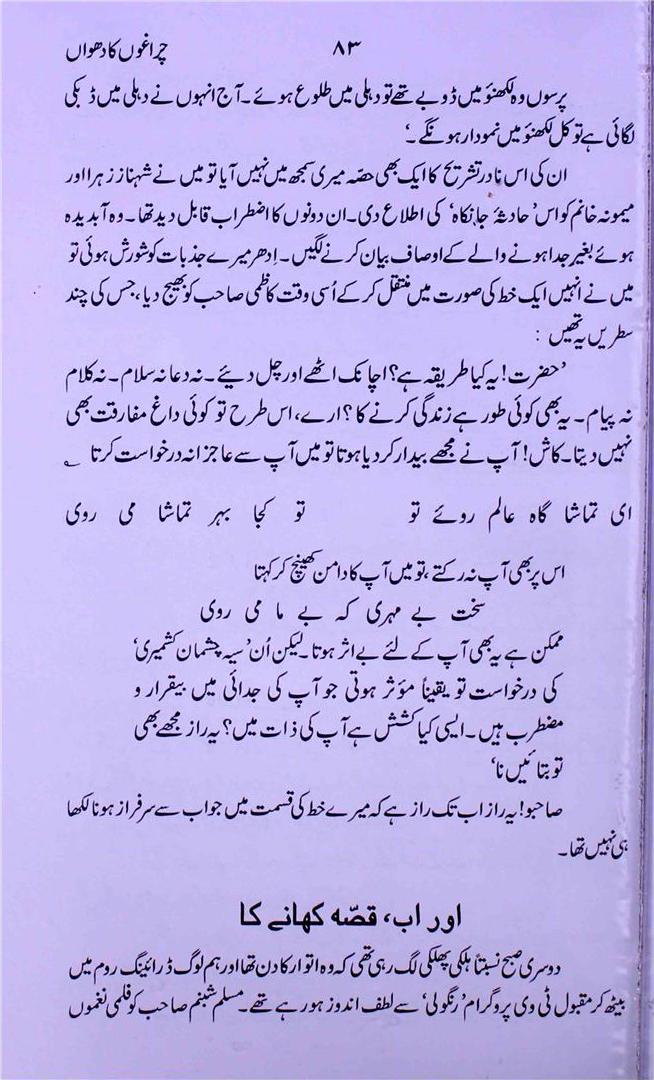 چراغوں کا دھواں ۸۳
پرسوں وہ لکھنؤ میں ڈوبے تھے تو دہلی میں طلوع ہوئے۔ آج انہوں نے دہلی میں ڈبکی
لگائی ہے تو کل لکھنؤ میں نمودار ہونگے۔‘
ان کی اس نادر تشریح کا ایک بھی حصّہ میری سمجھ میں نہیں آیا تو میں نے شہناز زہرا اور
میمونہ خانم کو اس ’حادثۂ جانکاہ‘ کی اطلاع دی۔ ان دونوں کا اضطراب قابل دید تھا۔ وہ آبدیدہ
ہوئے بغیر جدا ہونے والے کے اوصاف بیان کرنے لگیں۔ اِدھر میرے جذبات کو شورش ہوئی تو
میں نے انہیں ایک خط کی صورت میں منتقل کر کے اُسی وقت کاظمی صاحب کو بھیج دیا، جس کی چند
سطریں یہ تھیں :
’حضرت! یہ کیا طریقہ ہے؟ اچانک اٹھے اور چل دیئے۔ نہ دعا نہ سلام۔ نہ کلام
نہ پیام۔ یہ بھی کوئی طور ہے زندگی کرنے کا؟ ارے، اس طرح تو کوئی داغ مفارقت بھی
نہیں دیتا۔ کاش! آپ نے مجھے بیدار کر دیا ہوتا تو میں آپ سے عاجزانہ درخواست کرتا ؎
ای تماشا گاہ عالم روئے تو تو کجا بہر تماشا می روی
اس پر بھی آپ نہ رکتے، تو میں آپ کا دامن کھینچ کر کہتا
سخت بے مہری کہ بے ما می روی
ممکن ہے یہ بھی آپ کے لئے بے اثر ہوتا۔ لیکن اُن ’سیہ چشمان کشمیری‘
کی درخواست تو یقیناً مؤثر ہوتی جو آپ کی جدائی میں بیقرار و
مضطرب ہیں۔ ایسی کیا کشش ہے آپ کی ذات میں؟ یہ راز مجھے بھی
تو بتائیں نا‘
صاحبو! یہ راز اب تک راز ہے کہ میرے خط کی قسمت میں جواب سے سرفراز ہونا لکھا
ہی نہیں تھا۔
اور اب، قصّہ کھانے کا
دوسری صبح نسبتاً ہلکی پھلکی لگ رہی تھی کہ وہ اتوار کا دن تھا اور ہم لوگ ڈرائینگ روم میں
بیٹھ کر مقبول ٹی وی پروگرام ’رنگولی‘ سے لطف اندوز ہو رہے تھے۔ مسلم شبنم صاحب کو فلمی نغموں